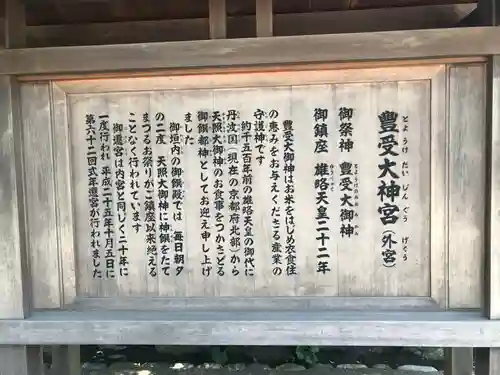 豊受大神宮（外宮）
とようけ だい じんぐう げくう
御祭神 豊受大御神
とようけのおおみかみ
御鎮座 雄略天皇二十二年
ゆうりゃく
豊受大御神はお米をはじめ衣食住
の恵みをお与えくださる産業の
守護神です
約千五百年前の雄略天皇の御代に
丹波国（現在の京都府北部）から
天照大御神のお食事をつかさどる
御饌都神としてお迎え申し上げ
ました
御垣内の御饌殿では 毎日朝夕
の二度 天照大御神に神饌をたて
まつるお祭りがご鎮座以来絶える
ことなく行われています
御遷宮は内宮と同じく二十年に
一度行われ 平成二十五年十月五日に
第六十二回式年遷宮が行われました